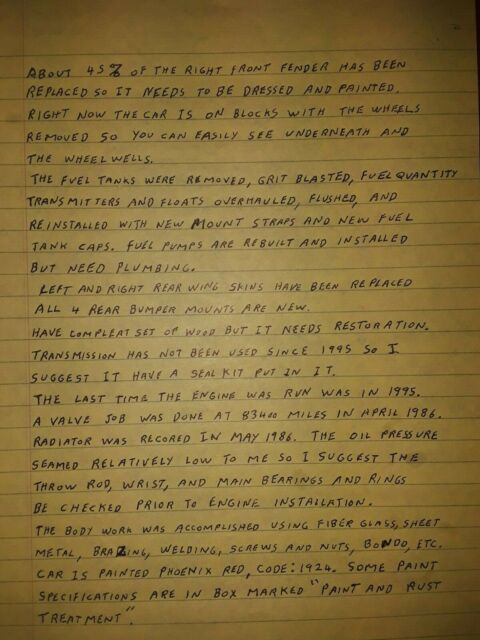 ABOUT 45% OF THE RIGHT FRONT FENDER HAS BEEN
REPLACED SO IT NEEDS TO BE DRESSED AND PAINTED.
RIGHT NOW THE CAR IS ON BLOCKS WITH THE WHEELS
REMOVED SO YOU CAN EASILY SEE UNDERNEATH AND
THE WHEELWELLS.
THE FUEL TANKS WERE REMOVED, GRIT BLASTED, FUEL QUANTITY
TRANSMITTERS AND FLOATS OVERHAULED, FLUSHED, AND
REINSTALLED WITH NEW MOUNT STRAPS AND NEW FUEL
TANK CAPS. FUEL PUMPS ARE REBUILT AND INSTALLED
BUT NEED PLUMBING.
LEFT AND RIGHT REAR WING SKINS HAVE BEEN REPLACED
ALL 4 REAR BUMPER MOUNTS ARE NEW.
HAVE COMPLEAT SET OF WOOD BUT IT NEEDS RESTORATION.
TRANSMISSION HAS NOT BEEN USED SINCE 1995 SO I
SUGGEST IT HAVE A SEAL KIT PUT IN IT.
THE LAST TIME THE ENGINE WAS RUN WAS IN 1995.
A VALVE JOB WAS DONE AT 83400 MILES IN APRIL 1986.
RADIATOR WAS RECORED IN MAY 1986. THE OIL PRESSURE
SEAMED RELATIVELY LOW TO ME SO I SUGGEST THE
THROW ROD, WRIST, AND MAIN BEARINGS AND RINGS
BE CHECKED PRIOR TO ENGINE INSTALLATION.
THE BODY WORK WAS ACCOMPLISHED USING FIBER GLASS, SHEET
METAL, BRAZING, WELDING, SCREWS AND NUTS, BONDO, ETC.
CAR IS PAINTED PHOENIX RED, CODE: 1924. SOME PAINT
SPECIFICATIONS ARE IN BOX MARKED "PAINT AND RUST
TREATMENT".